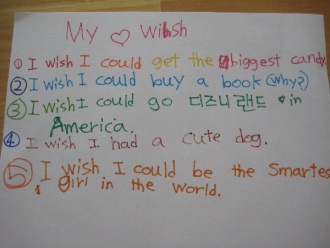 My ♡ Wihsh
① I wish I could get the biggest candy
② I wish I could buy a book (why?)
③ I wish I could go 디즈니랜드 in
America.
④ I wish I had a cute dog.
⑤ I wish I could be the Smartes
girl in the world.